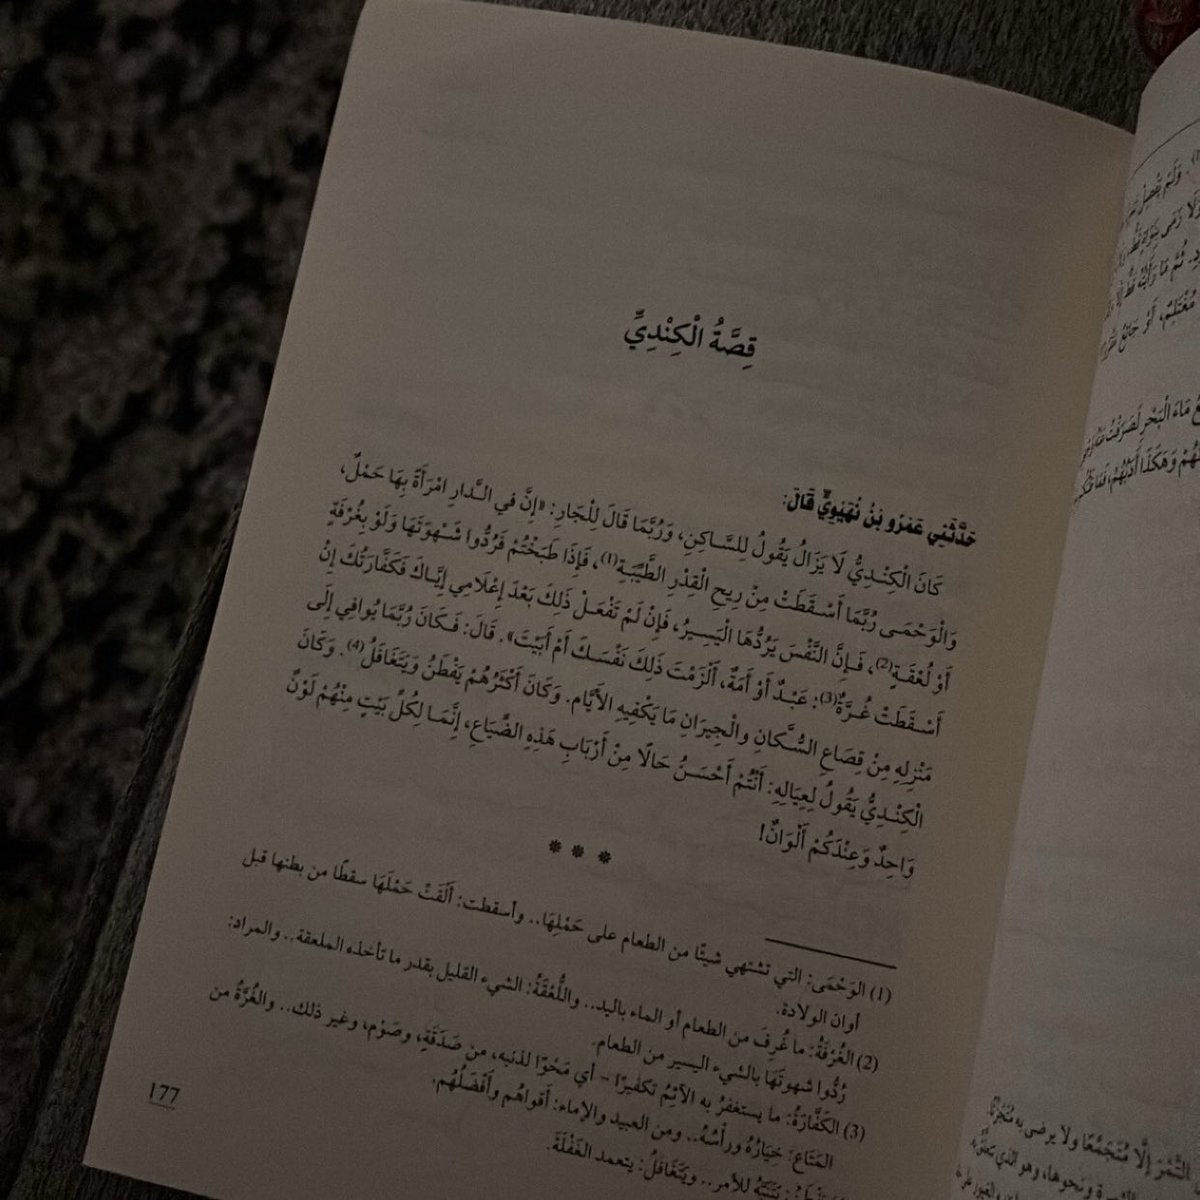 قِصَّةُ الْكِنْدِيِّ
حَدَّثَنِي عَمْرُو بْنُ نُهَيْوِيٍّ قَالَ:
كَانَ الْكِنْدِيُّ لَا يَزَالُ يَقُولُ لِلسَّاكِنِ، وَرُبَّمَا قَالَ لِلْجَارِ: «إِنَّ في الـدَّارِ امْرَأَةً بِهَا حَمْلٌ،
وَالْوَحْمَـى رُبَّمَا أَسْـقَطَتْ مِنْ رِيحِ الْقِدْرِ الطَّيِّبَـةِ(1)، فَإِذَا طَبَخْتُمْ فَرُدُّوا شَـهْوَتَهَا وَلَوْ بِغُرْفَةٍ
أَوْ لُعْقَـةٍ(2)، فَـإِنَّ النَّفْسَ يَرُدُّهَا الْيَسِـيرُ، فَإِنْ لَمْ تَفْعَـلْ ذَلِكَ بَعْدَ إِعْلَامِي إِيَّـاكَ فَكَفَّارَتُكَ إِنْ
أَسْـقَطَتْ غُـرَّةٌ(3): عَبْـدٌ أَوْ أَمَةٌ، أَلْزَمْتَ ذَلِكَ نَفْسَكَ أَمْ أَبَيْتَ». قَالَ: فَـكَانَ رُبَّمَا يُوَافِي إِلَى
مَنْزِلِهِ مِنْ قِصَاعِ السُّـكَّانِ والْجِيرَانِ مَا يَكْفِيهِ الأَيَّام. وَكَانَ أَكْثَرُهُمْ يَفْطَنُ وَيَتَغَافَلُ(4). وَكَانَ
الْكِنْـدِيُّ يَقُولُ لِعِيَالِهِ: أَنْتُمْ أَحْسَـنُ حَالًا مِنْ أَرْبَابِ هَذِهِ الضِّيَاعِ، إِنَّمَـا لِكُلِّ بَيْتٍ مِنْهُمْ لَوْنٌ
وَاحِدٌ وَعِنْدَكُمْ أَلْوَانٌ!
* * *
(1) الوَحْمَى: التي تشتهي شيئًا من الطعام على حَمْلِهَا.. وأسقطت: أَلْقَتْ حَمْلَهَا سقطًا من بطنها قبل
أوان الولادة.
(2) الغُرْفَةُ: ما غُرِفَ من الطعام أو الماء باليد.. واللُّعْقَةُ: الشيء القليل بقدر ما تأخذه الملعقة.. والمراد:
رُدُّوا شهوتَهَا بالشيء اليسير من الطعام.
(3) الكَفَّارَةُ: ما يستغفرُ به الآثِمُ تكفيرًا – أي مَحْوًا لذنبه، من صَدَقَةٍ، وصَوْم، وغير ذلك.. والغُرَّةُ من
المَتَاع: خِيَارُهُ ورأْسُهُ.. ومن العبيد والإماء: أَقواهُم وأَفْضَلُهُم.
تَنَبَّهَ للأمر.. ويَتَغَافَلُ: يتعمد الغَفْلَةَ.
177